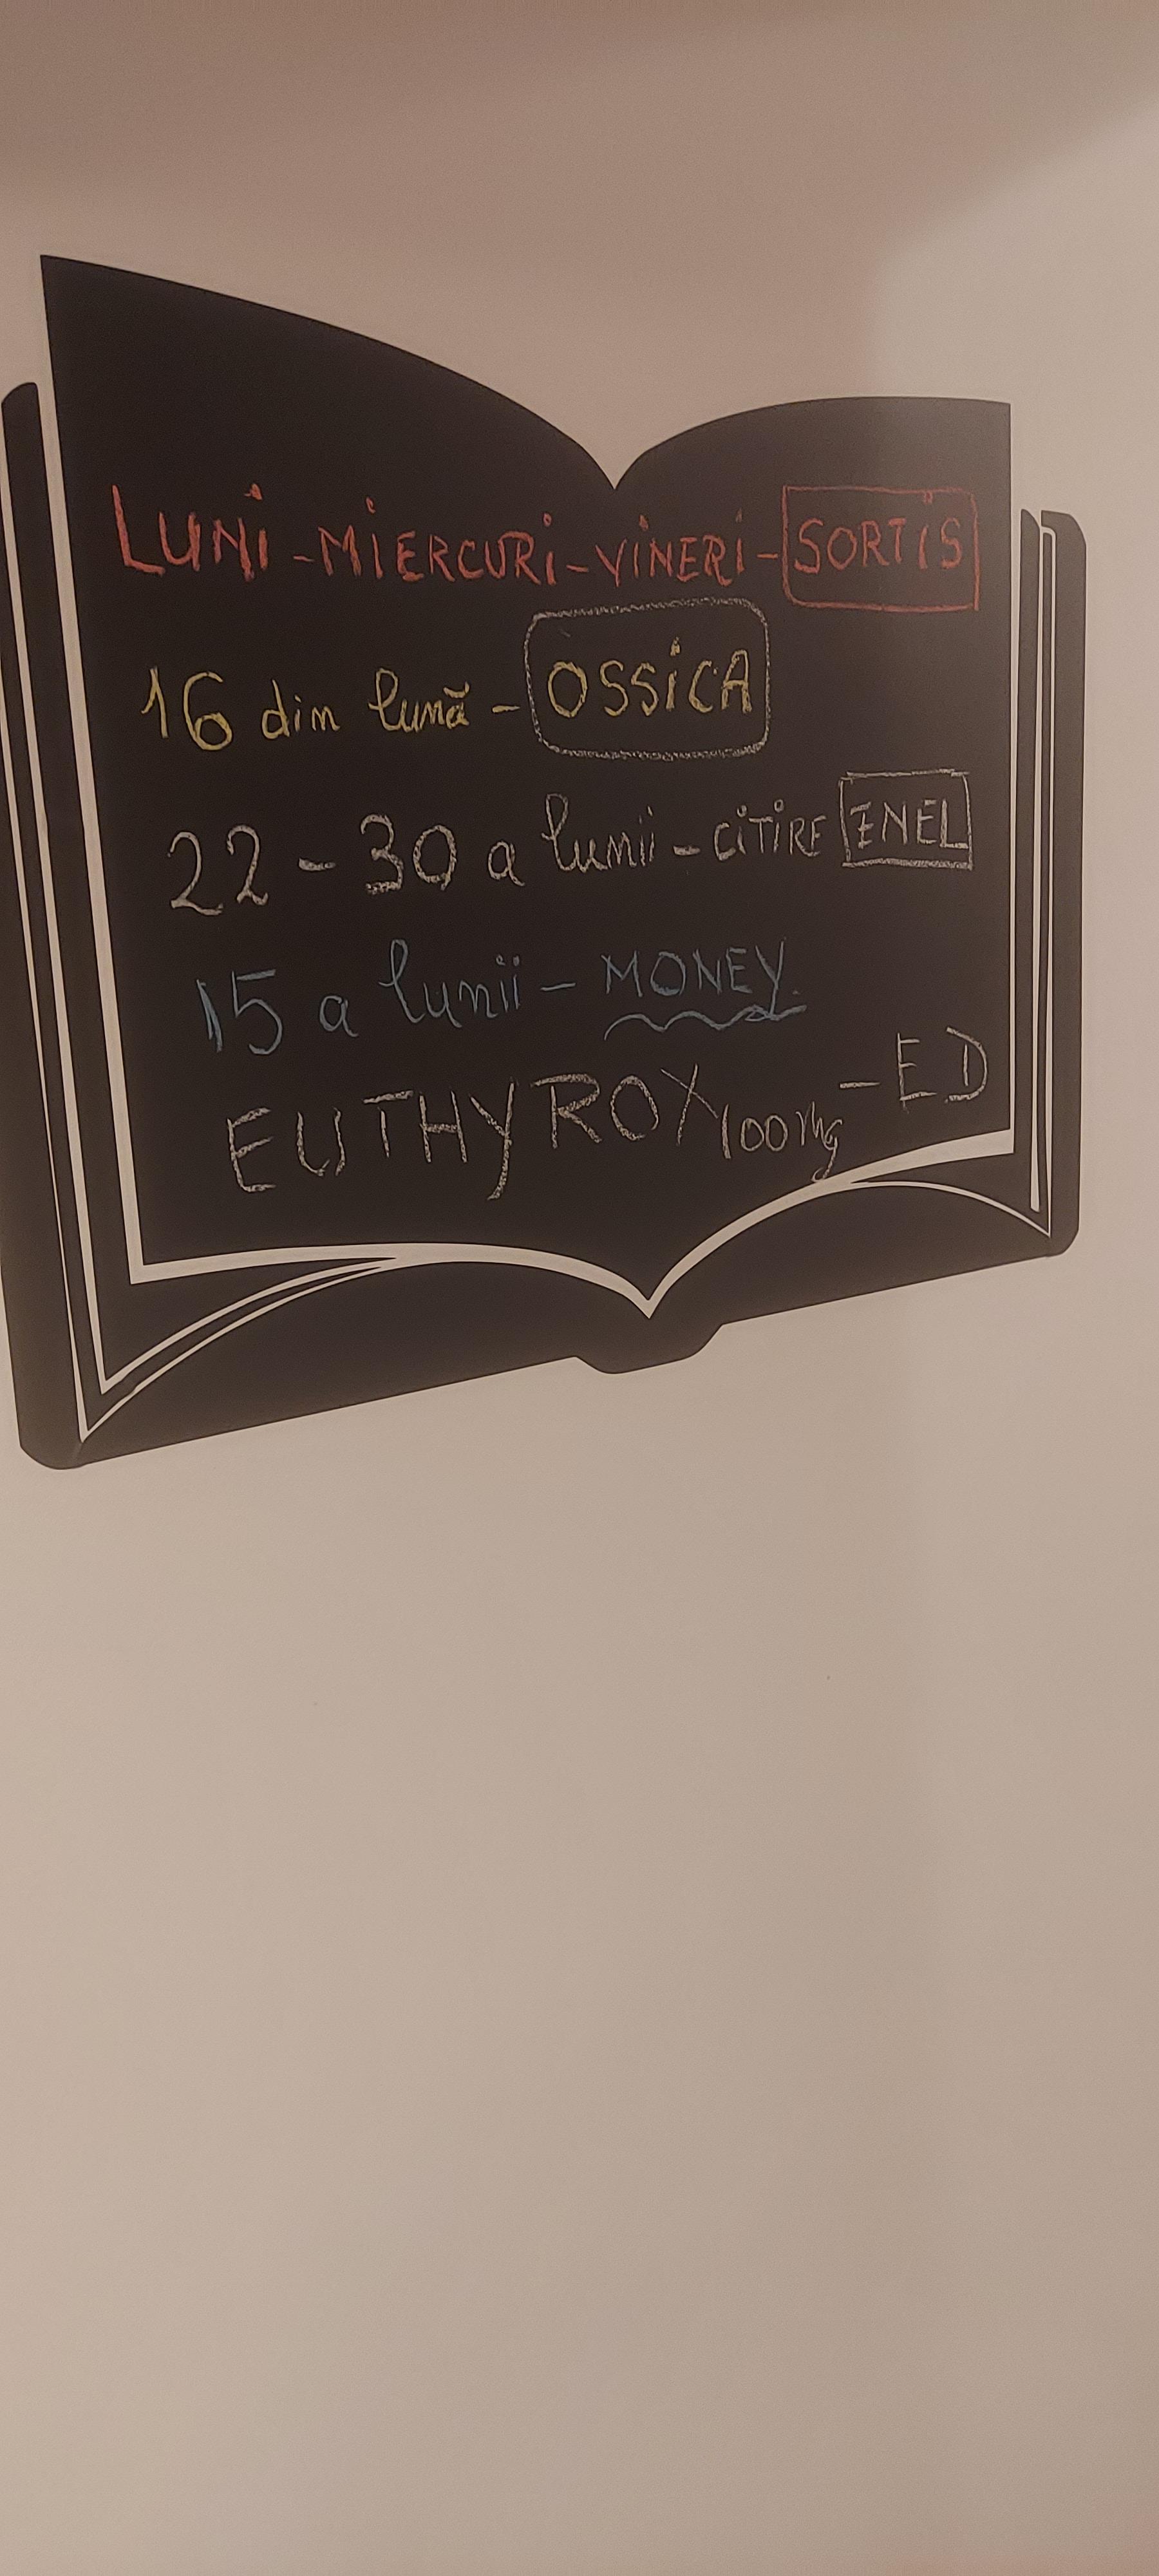 LUNI - MIERCURI - VINERI - SORTIS
16 din lună - OSSICA
22 - 30 a lunii - CITIRE ENEL
15 a lunii - MONEY
EUTHYROX 100mg - ED